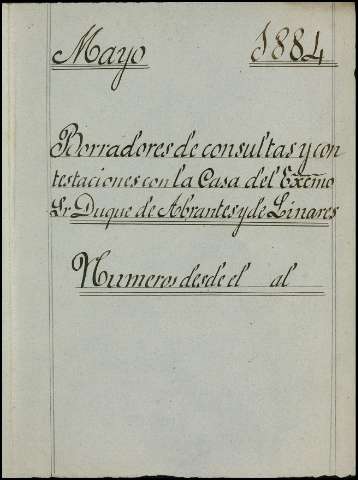 Mayo 1884
Borradores de consultas y con
testaciones con la Casa del Exc̃mo
Sr. Duque de Abrantes y de Linares
Numeros desde el al